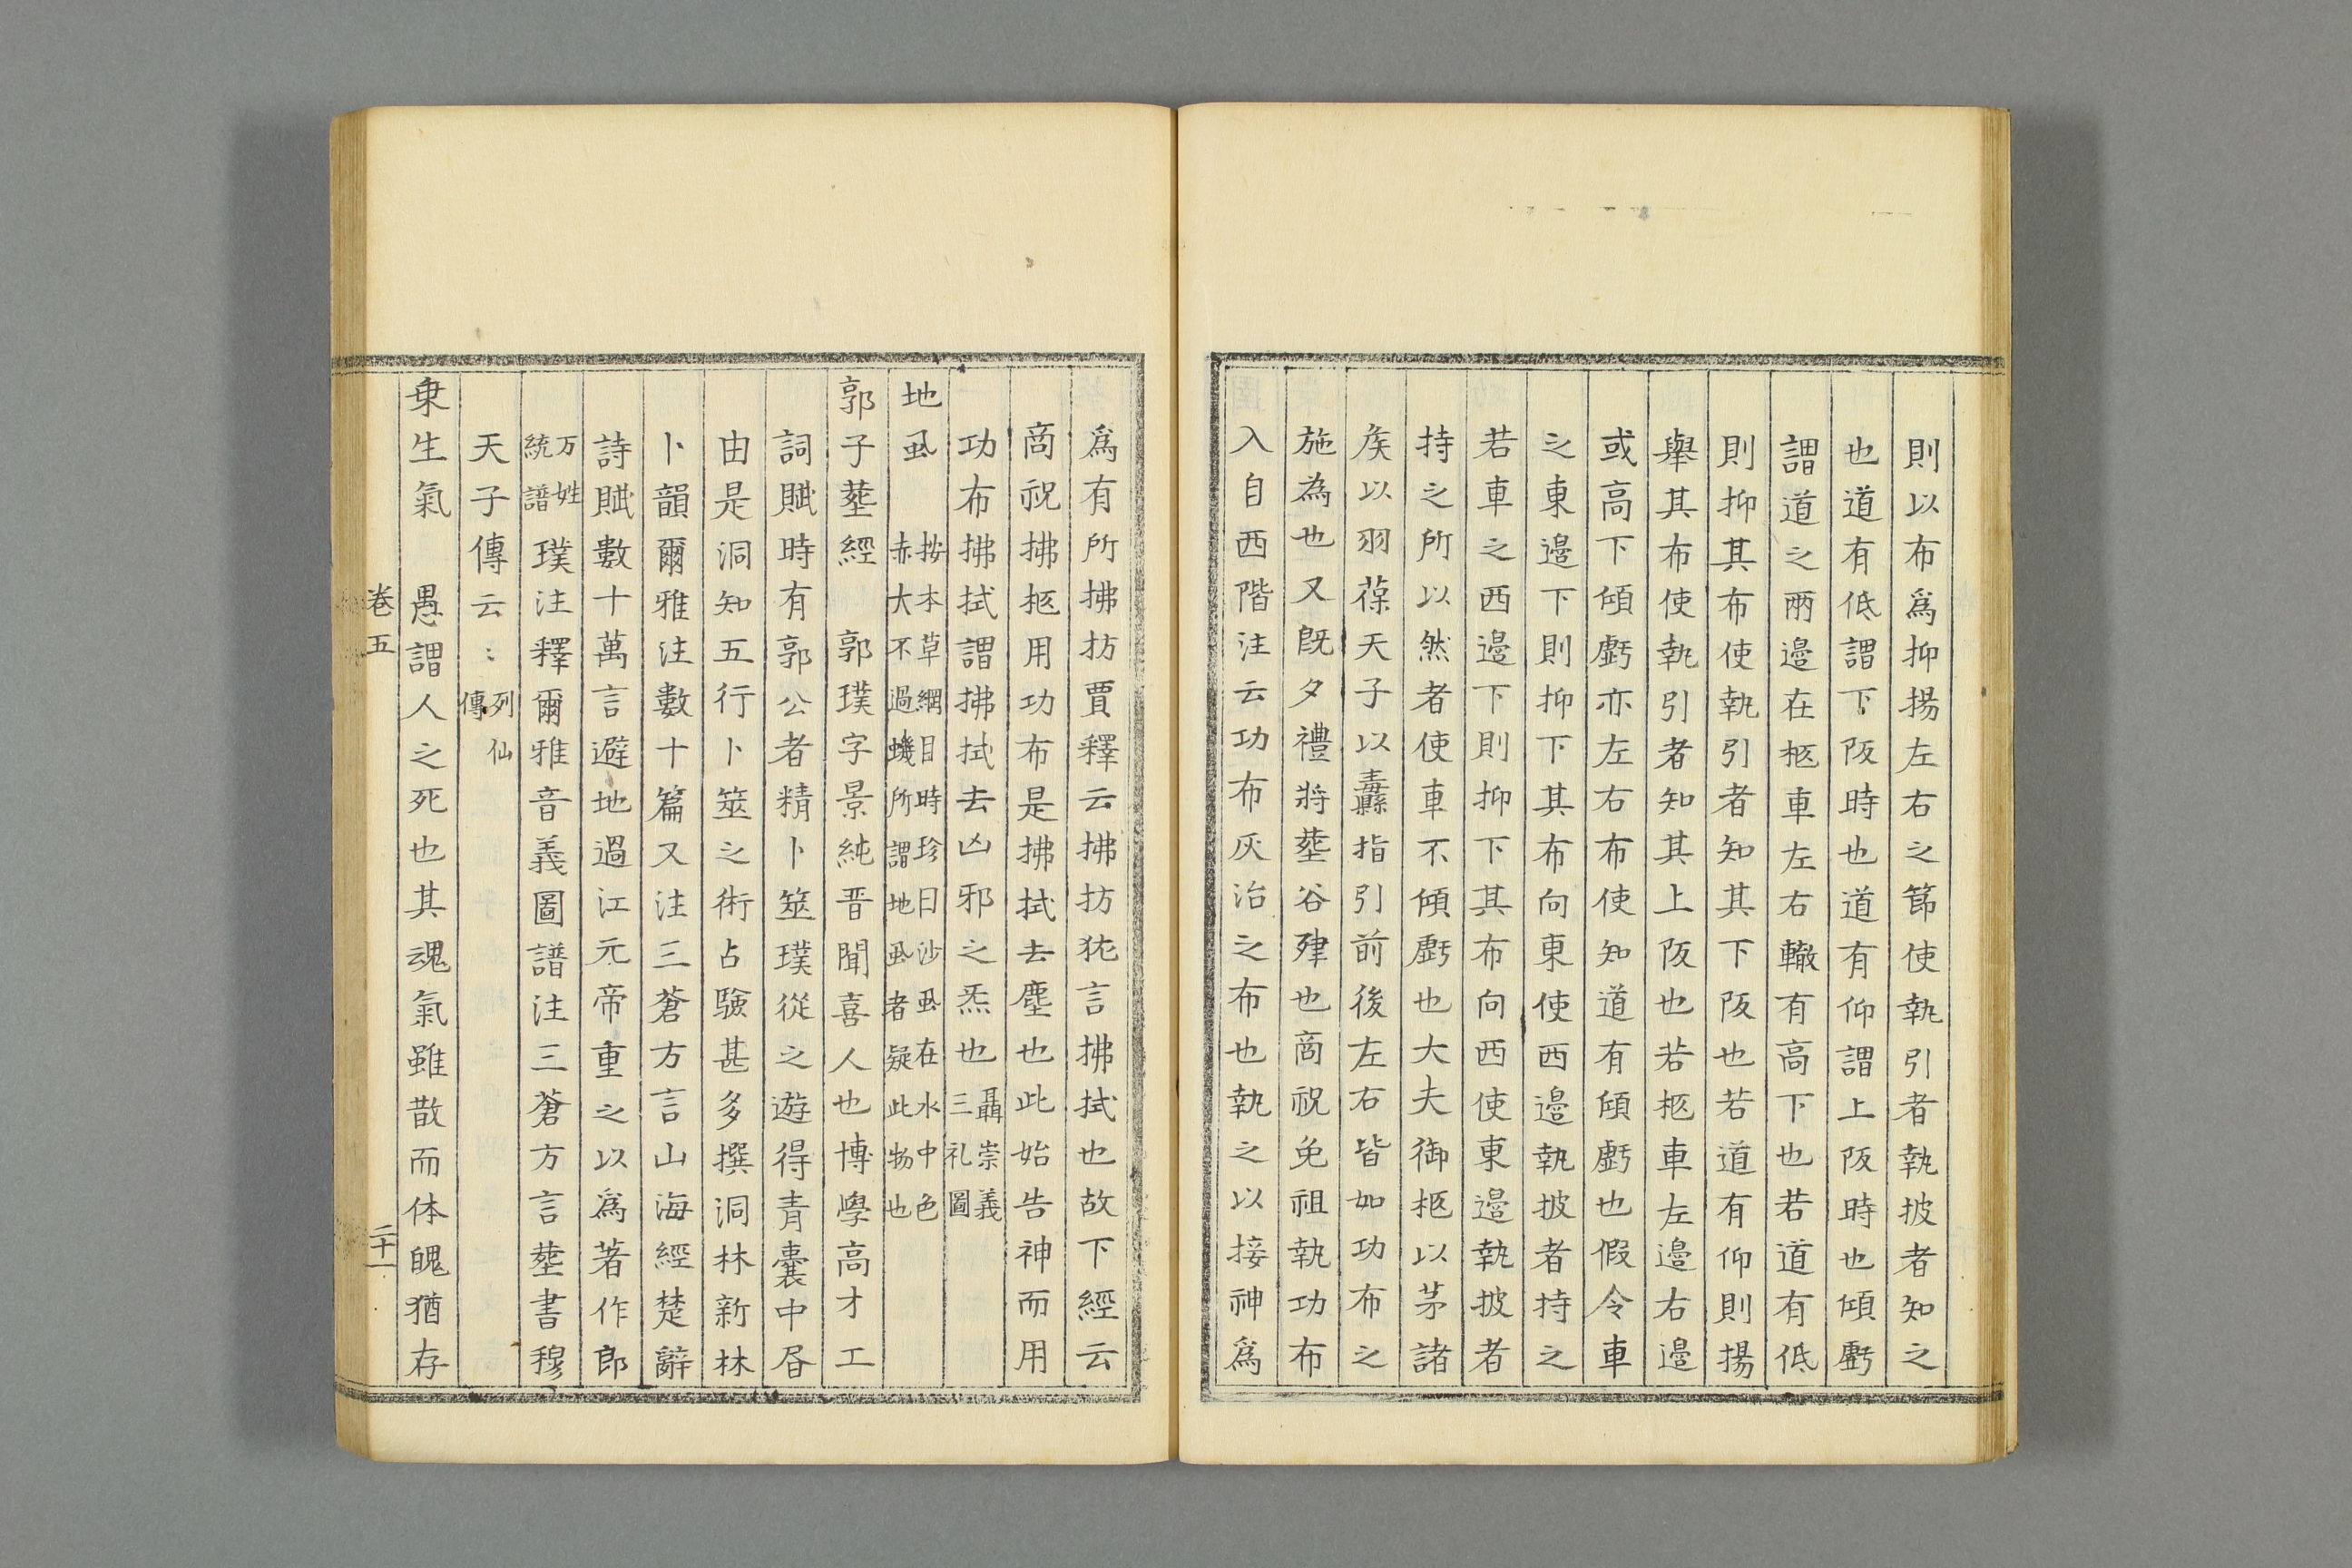 則以布爲抑揚左右之節使執引者執披者知之
也道有低謂下阪時也道有仰謂上阪時也傾虧
謂道之兩邉在柩車左右轍有高下也若道有低
則抑其布使執引者知其下阪也若道有仰則揚
舉其布使執引者知其上阪也若柩車左邉右邉
或高下傾虧亦左右布使知道有傾虧也假令車
之東邉下則抑下其布向東使西邉執披者持之
若車之西邉下則抑下其布向西使東邉執披者
持之所以然者使車不傾虧也大夫御柩以茅諸
矦以羽葆天子以纛指引前後左右皆如功布之
施為也又旣夕禮將塟谷肂也商祝免祖執功布
入自西階注云功布灰治之布也執之以接神爲
爲有所拂扐賈釋云拂扐犹言拂拭也故下經云
商祝拂柩用功布是拂拭去塵也此始告神而用
功布拂拭謂拂拭去凶邪之炁也聶崇義三礼圖
地虱 按本草綱目時珍曰沙虱在水中色
赤大不過蟣所謂地虱者疑此物也
郭子塟經 郭璞字景純晋聞喜人也博學高才工
詞賦時有郭公者精卜筮璞從之遊得青囊中㫺
由是洞知五行卜筮之術占験甚多撰洞林新林
卜韻爾雅注數十篇又注三蒼方言山海經楚辭
詩賦數十萬言避地過江元帝重之以爲著作郎
万姓統譜 璞注釋爾雅音義圖譜注三蒼方言塟書穆
天子傳云〻列仙傳
乗生氣 愚謂人之死也其魂氣雖散而体魄猶存
卷五 二十一